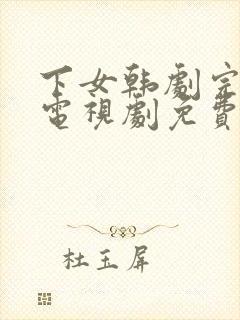 下女韩剧完
电视剧免费
杜玉屏